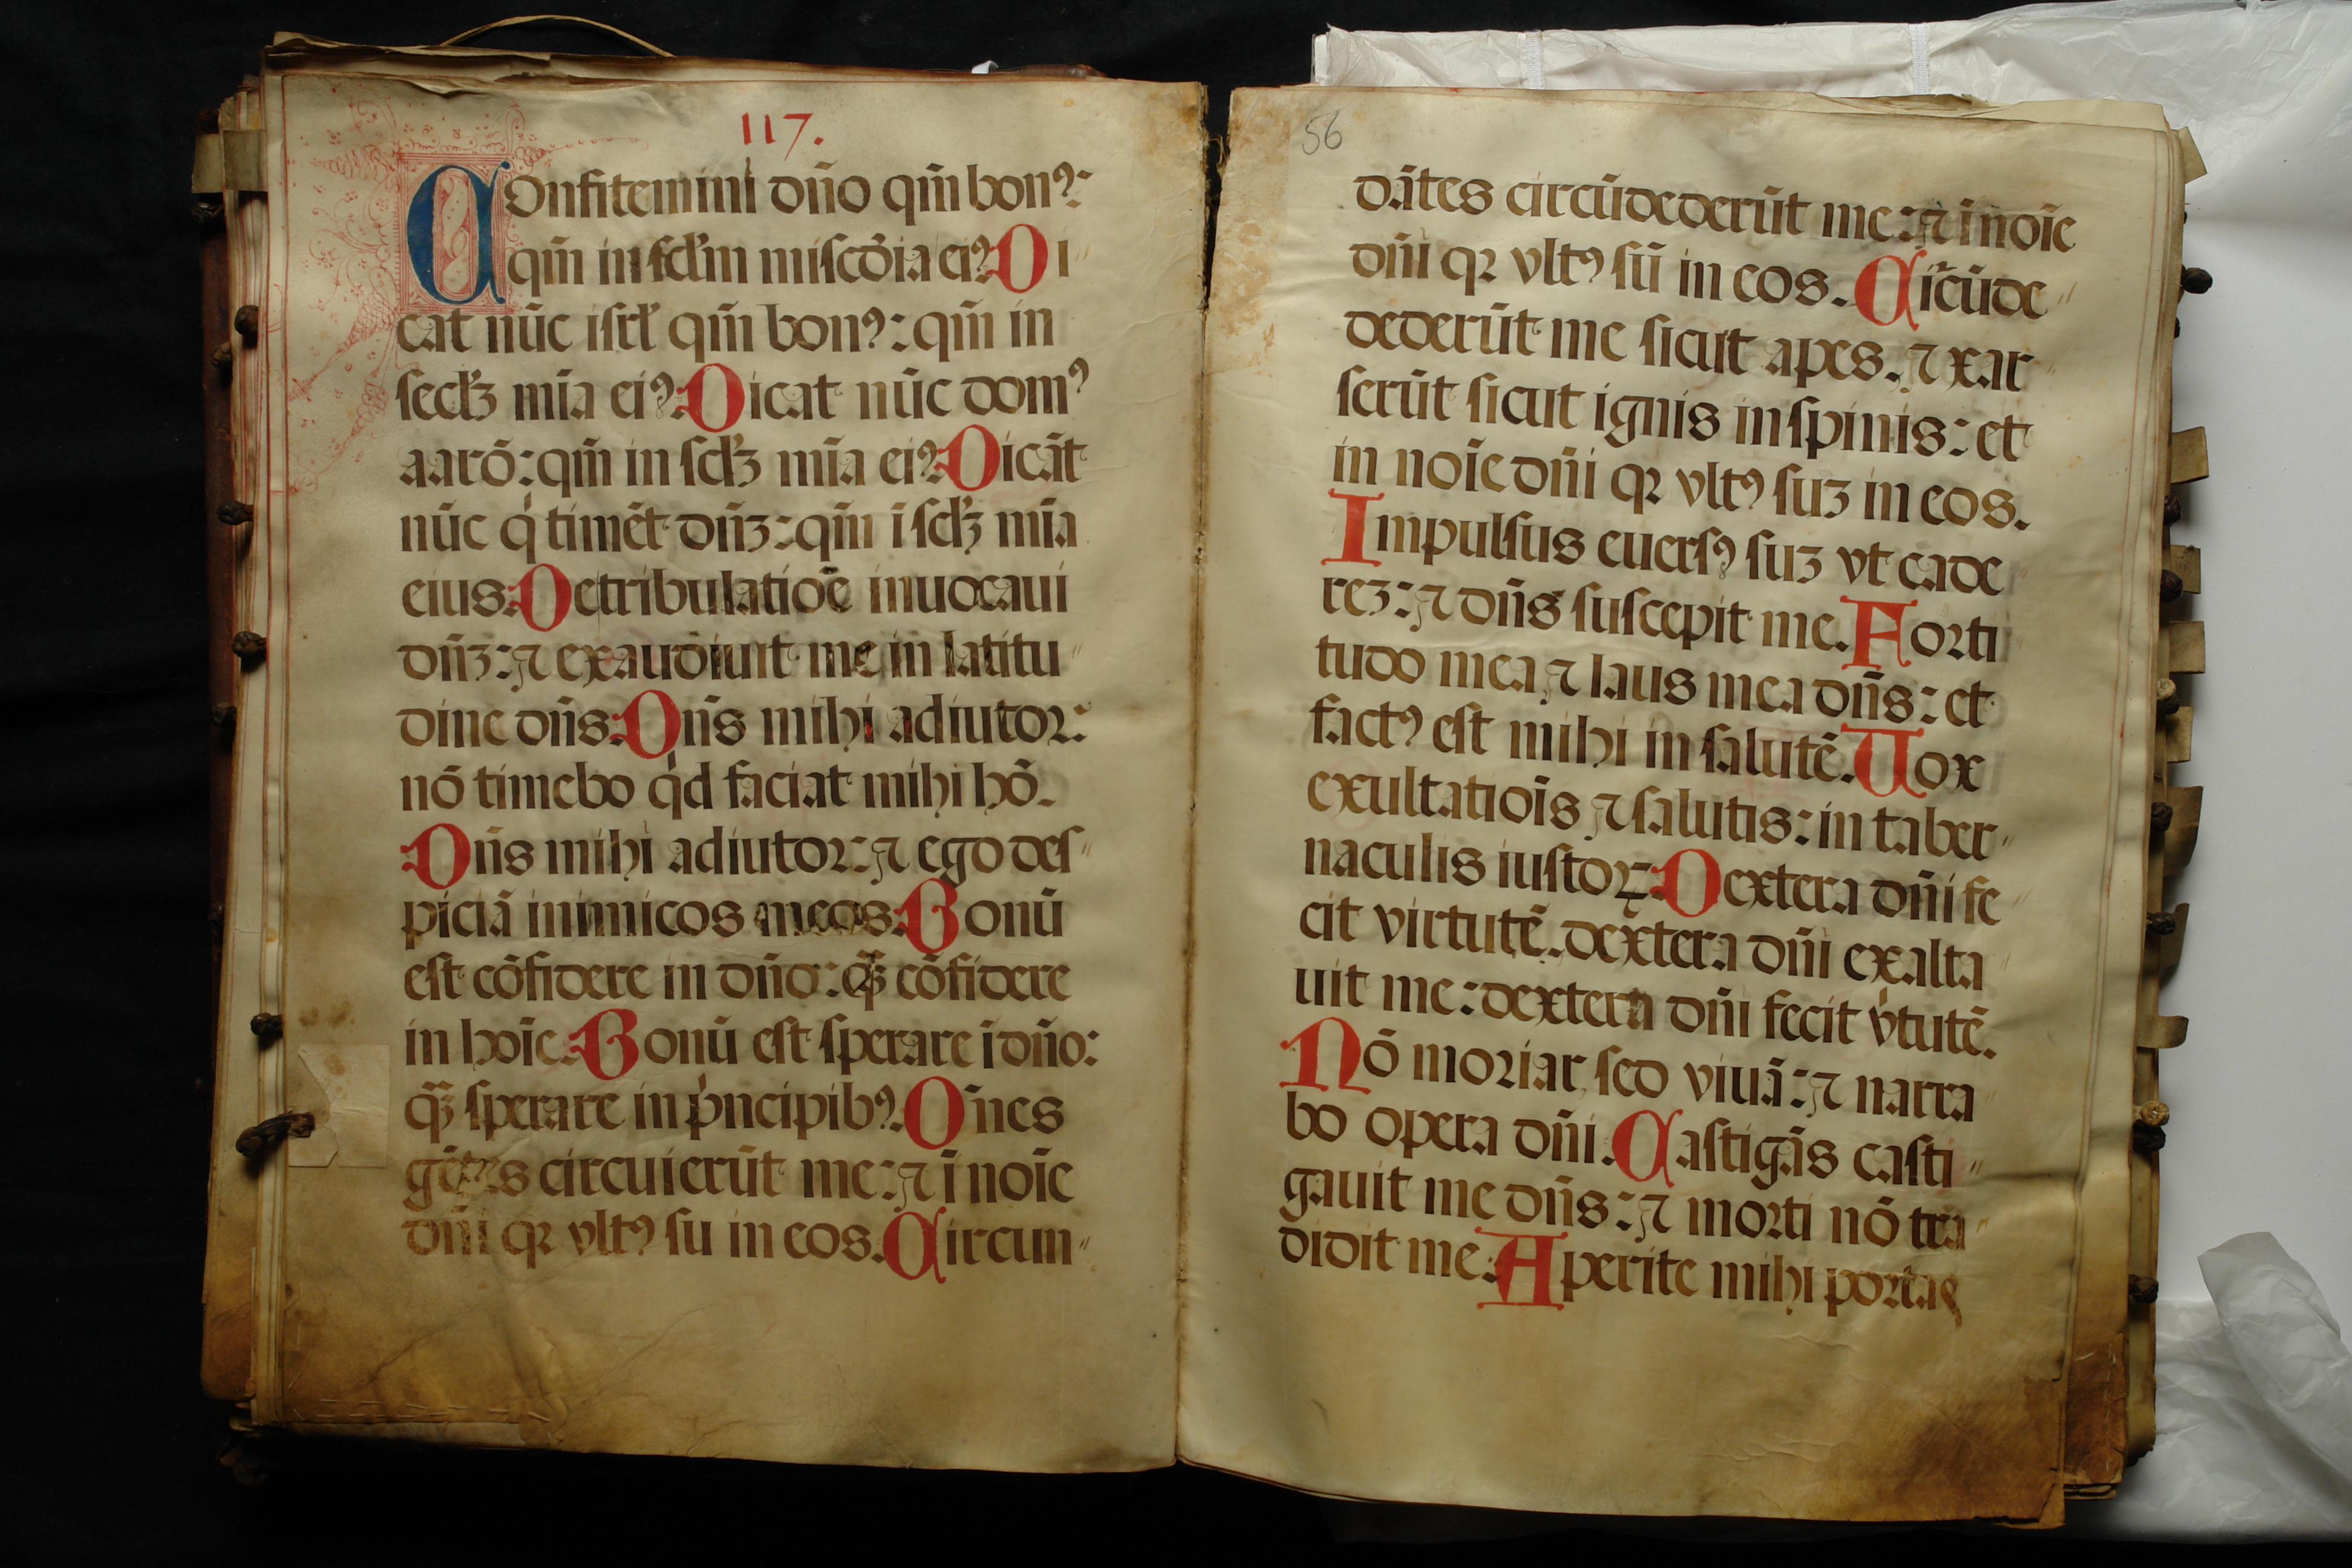 117.
Confitemini dño qm̃ bonꝰ:
qm̃ in scl̃m miscõia eiꝰ. Di
cat nũc isrl̃ qm̃ bonꝰ: qm̃ in
secl̃ꝫ mĩa eiꝰ. Dicat nũc domꝰ
aarõ: qm̃ in scl̃ꝫ mĩa eiꝰ. Dicãt
nũc qͥ timẽt dñꝫ: qm̃ ĩ scl̃ꝫ mĩa
eius. De tribulatiõe inuocaui
dñꝫ: ⁊ exaudiuit me in latitu〃
dine dñs. Dñs mihi adiutor:
nõ timebo qͥd faciat mihi hõ.
Dñs mihi adiutor: ⁊ ego des〃
piciã inimicos meos. Bonũ
est cõfidere in dño: qꝫ̃ cõfidere
in hoĩe. Bonũ est sperare ĩ dño:
qꝫ̃ sperare in pͥncipibꝰ. Om̃nes
gẽtes circuierũt me: ⁊ ĩ noĩe
dñi qꝛ vltꝰ su in eos. Circun〃
56
dãtes circũdederũt me: ⁊ ĩ noĩe
dñi qꝛ vltꝰ sũ in eos. Cir̃cũde〃
dederũt me sicut apes. ⁊ xar〃
serũt sicut ignis in spinis: et
in noĩe dñi qꝛ vltꝰ suꝫ in eos.
Impulsus euersꝰ suꝫ vt cade
reꝫ: ⁊ dñs suscepit me. Forti
tudo mea ⁊ laus mea dñs: et
factꝰ est mihi in salutẽ. Vox
exultatiõis ⁊ salutis: in taber〃
naculis iustoꝝ. Dextera dñi fe〃
cit virtutẽ. dextera dñi exalta〃
uit me: dextera dñi fecit vͥtutẽ.
Nõ moriar, sed viuã: ⁊ narra〃
bo opera dñi. Castigãs casti〃
gauit me dñs: ⁊ morti nõ tra〃
didit me. Aperite mihi portas